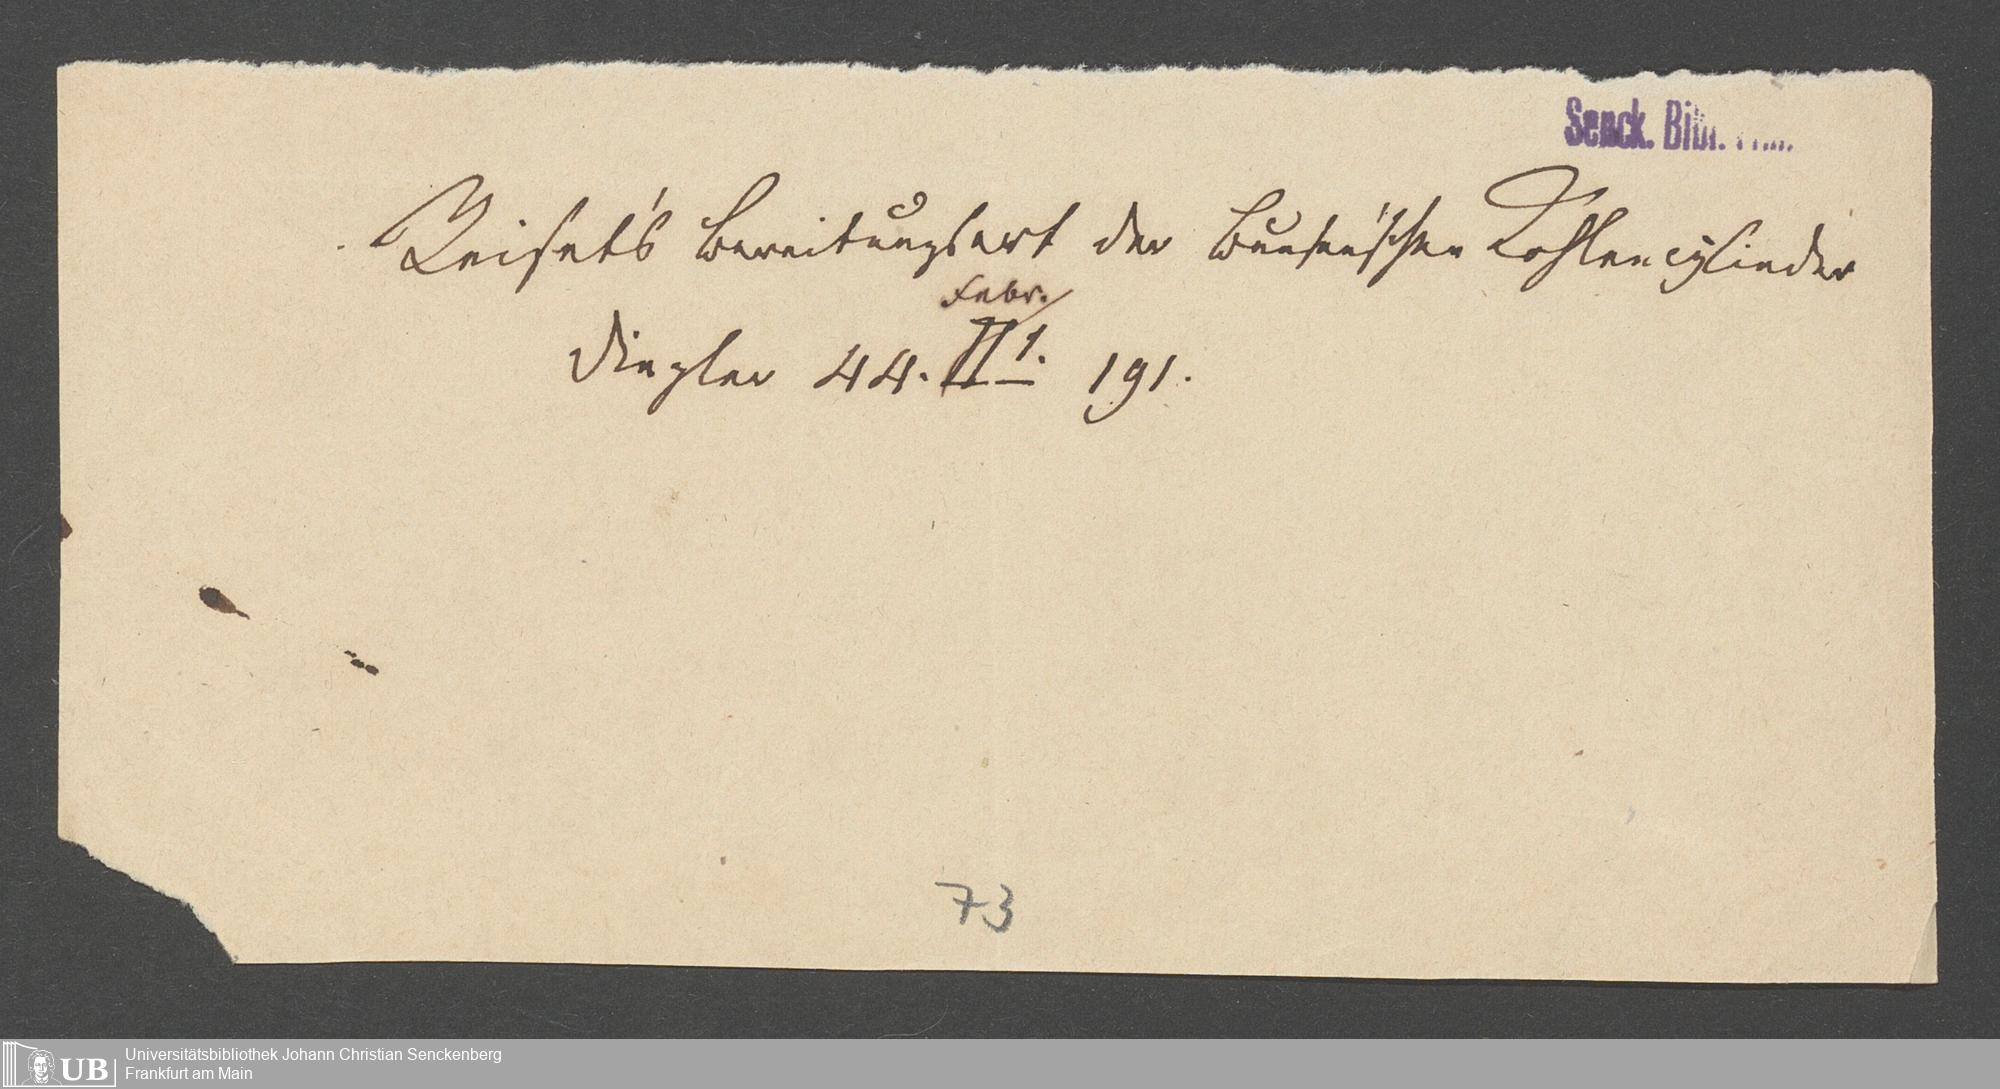 Senck. Bibl. Ffm.
Reiset's Bereitungsart der Bunsen'schen Kohlencylinder
Febr.
Dingler 44. II 1. 191.
73
UB
Universitätsbibliothek Johann Christian Senckenberg
Frankfurt am Main